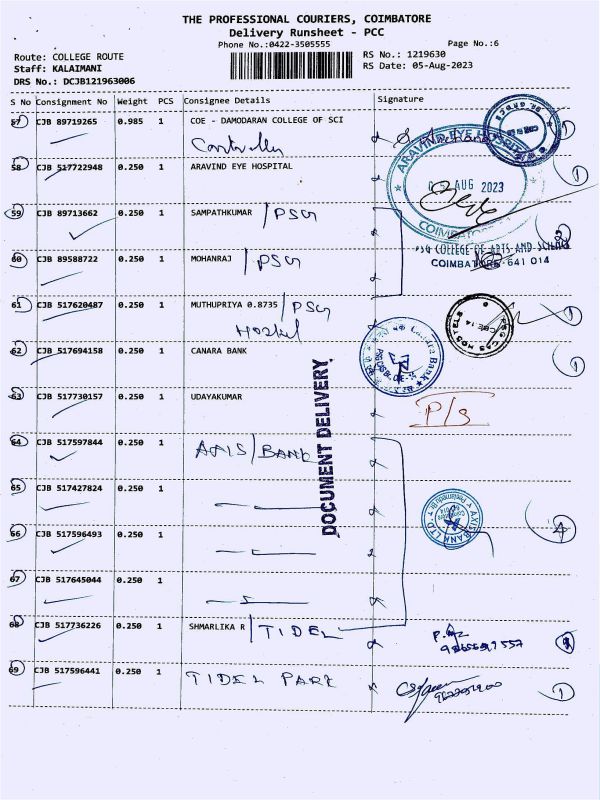 THE PROFESSIONAL COURIERS, COIMBATORE
Delivery Runsheet - PCC
Phone No.:0422-3505555
Page No.:6
Route: COLLEGE ROUTE
RS No.: 1219630
Staff: KALAIMANI
RS Date: 05-Aug-2023
DRS No.: DCJB121963006
S No Consignment No Weight PCS Consignee Details Signature
57 CJB 89719265 0.985 1 COE - DAMODARAN COLLEGE OF SCI
58 CJB 517722948 0.250 1 ARAVIND EYE HOSPITAL
ARAVIND EYE HOSPITAL
AUG 2023
COIMBATORE
1
59 CJB 89713662 0.250 1 SAMPATHKUMAR / PSG
PSG COLLEGE OF ARTS AND SCIENCE
COIMBATORE-641 014
2
60 CJB 89588722 0.250 1 MOHANRAJ / PSG
61 CJB 517620487 0.250 1 MUTHUPRIYA 0.8735 / PSG
Hostel
PSG CAS HOSTELS
CBE-14
1
62 CJB 517694158 0.250 1 CANARA BANK
Canara Bank
1
63 CJB 517730157 0.250 1 UDAYAKUMAR
P/S
DOCUMENT DELIVERY
64 CJB 517597844 0.250 1 AXIS/BANK
65 CJB 517427824 0.250 1
AXIS BANK LTD.
66 CJB 517596493 0.250 1
4
67 CJB 517645044 0.250 1
68 CJB 517736226 0.250 1 SHMARLIKA R / TIDEL
69 CJB 517596441 0.250 1 TIDEL PARK
1